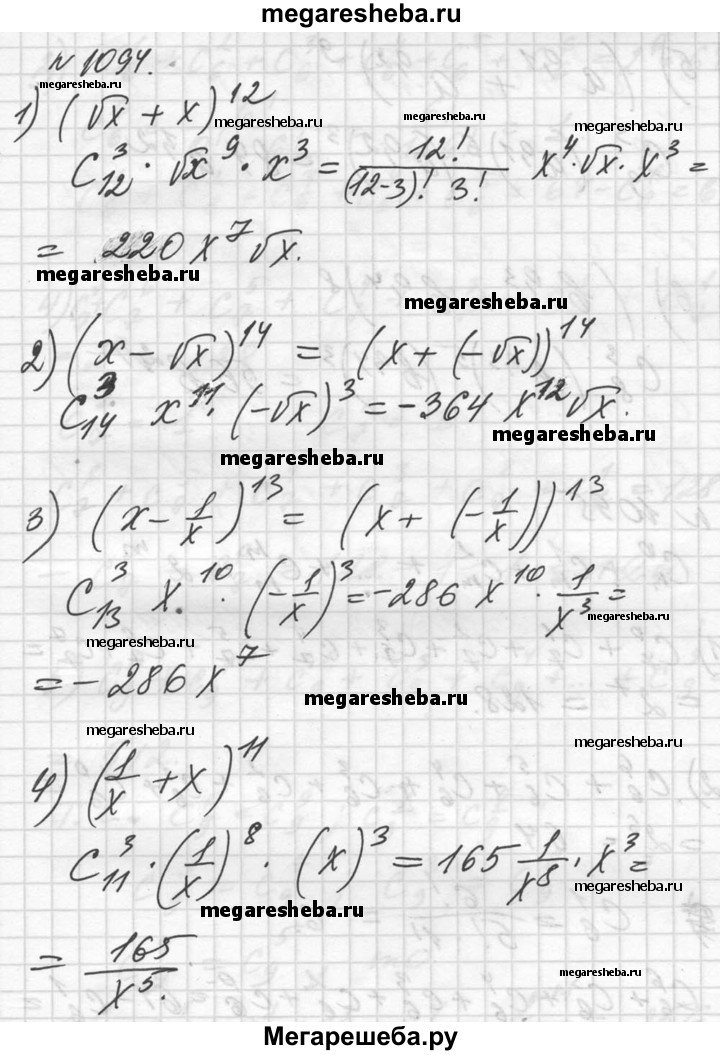 megaresheba.ru
№ 1094.
megaresheba.ru
1) (√x + x)^12
megaresheba.ru
megaresheba.ru
C_12^3 · √x^9 · x^3 = 12! / ((12-3)! 3!) x^4 · √x · x^3 =
megaresheba.ru
megaresheba.ru
= 220 x^7 √x.
megaresheba.ru
megaresheba.ru
2) (x - √x)^14 = (x + (-√x))^14
C_14^3 x^11 · (-√x)^3 = -364 x^12 √x.
megaresheba.ru
megaresheba.ru
3) (x - 1/x)^13 = (x + (-1/x))^13
C_13^3 x^10 · (-1/x)^3 = -286 x^10 · 1/x^3 =
megaresheba.ru
megaresheba.ru
= -286 x^7
megaresheba.ru
megaresheba.ru
megaresheba.ru
4) (1/x + x)^11
C_11^3 · (1/x)^8 · (x)^3 = 165 1/x^8 · x^3 =
megaresheba.ru
megaresheba.ru
= 165/x^5.
megaresheba.ru
Мегарешеба.ру